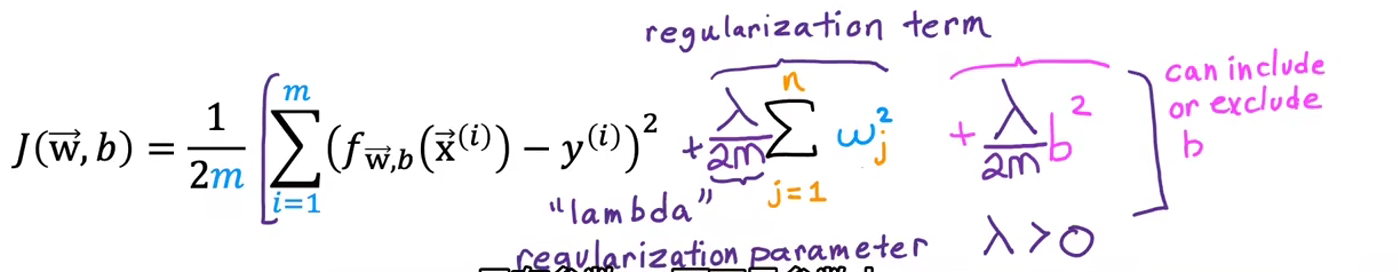 regularization term
J(w⃗, b) = 1/2m [ ∑_{i=1}^{m} (f_{w⃗,b}(x⃗^{(i)}) − y^{(i)})² + λ/2m ∑_{j=1}^{n} w_j² + λ/2m b² ]
can include
or exclude
b
"lambda"
regularization parameter
λ > 0